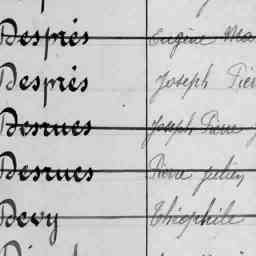 Després Eugène Ma
Després Joseph Pier
Desrues Joseph Pierre J
Desrues Pierre julien
Devy Théophile